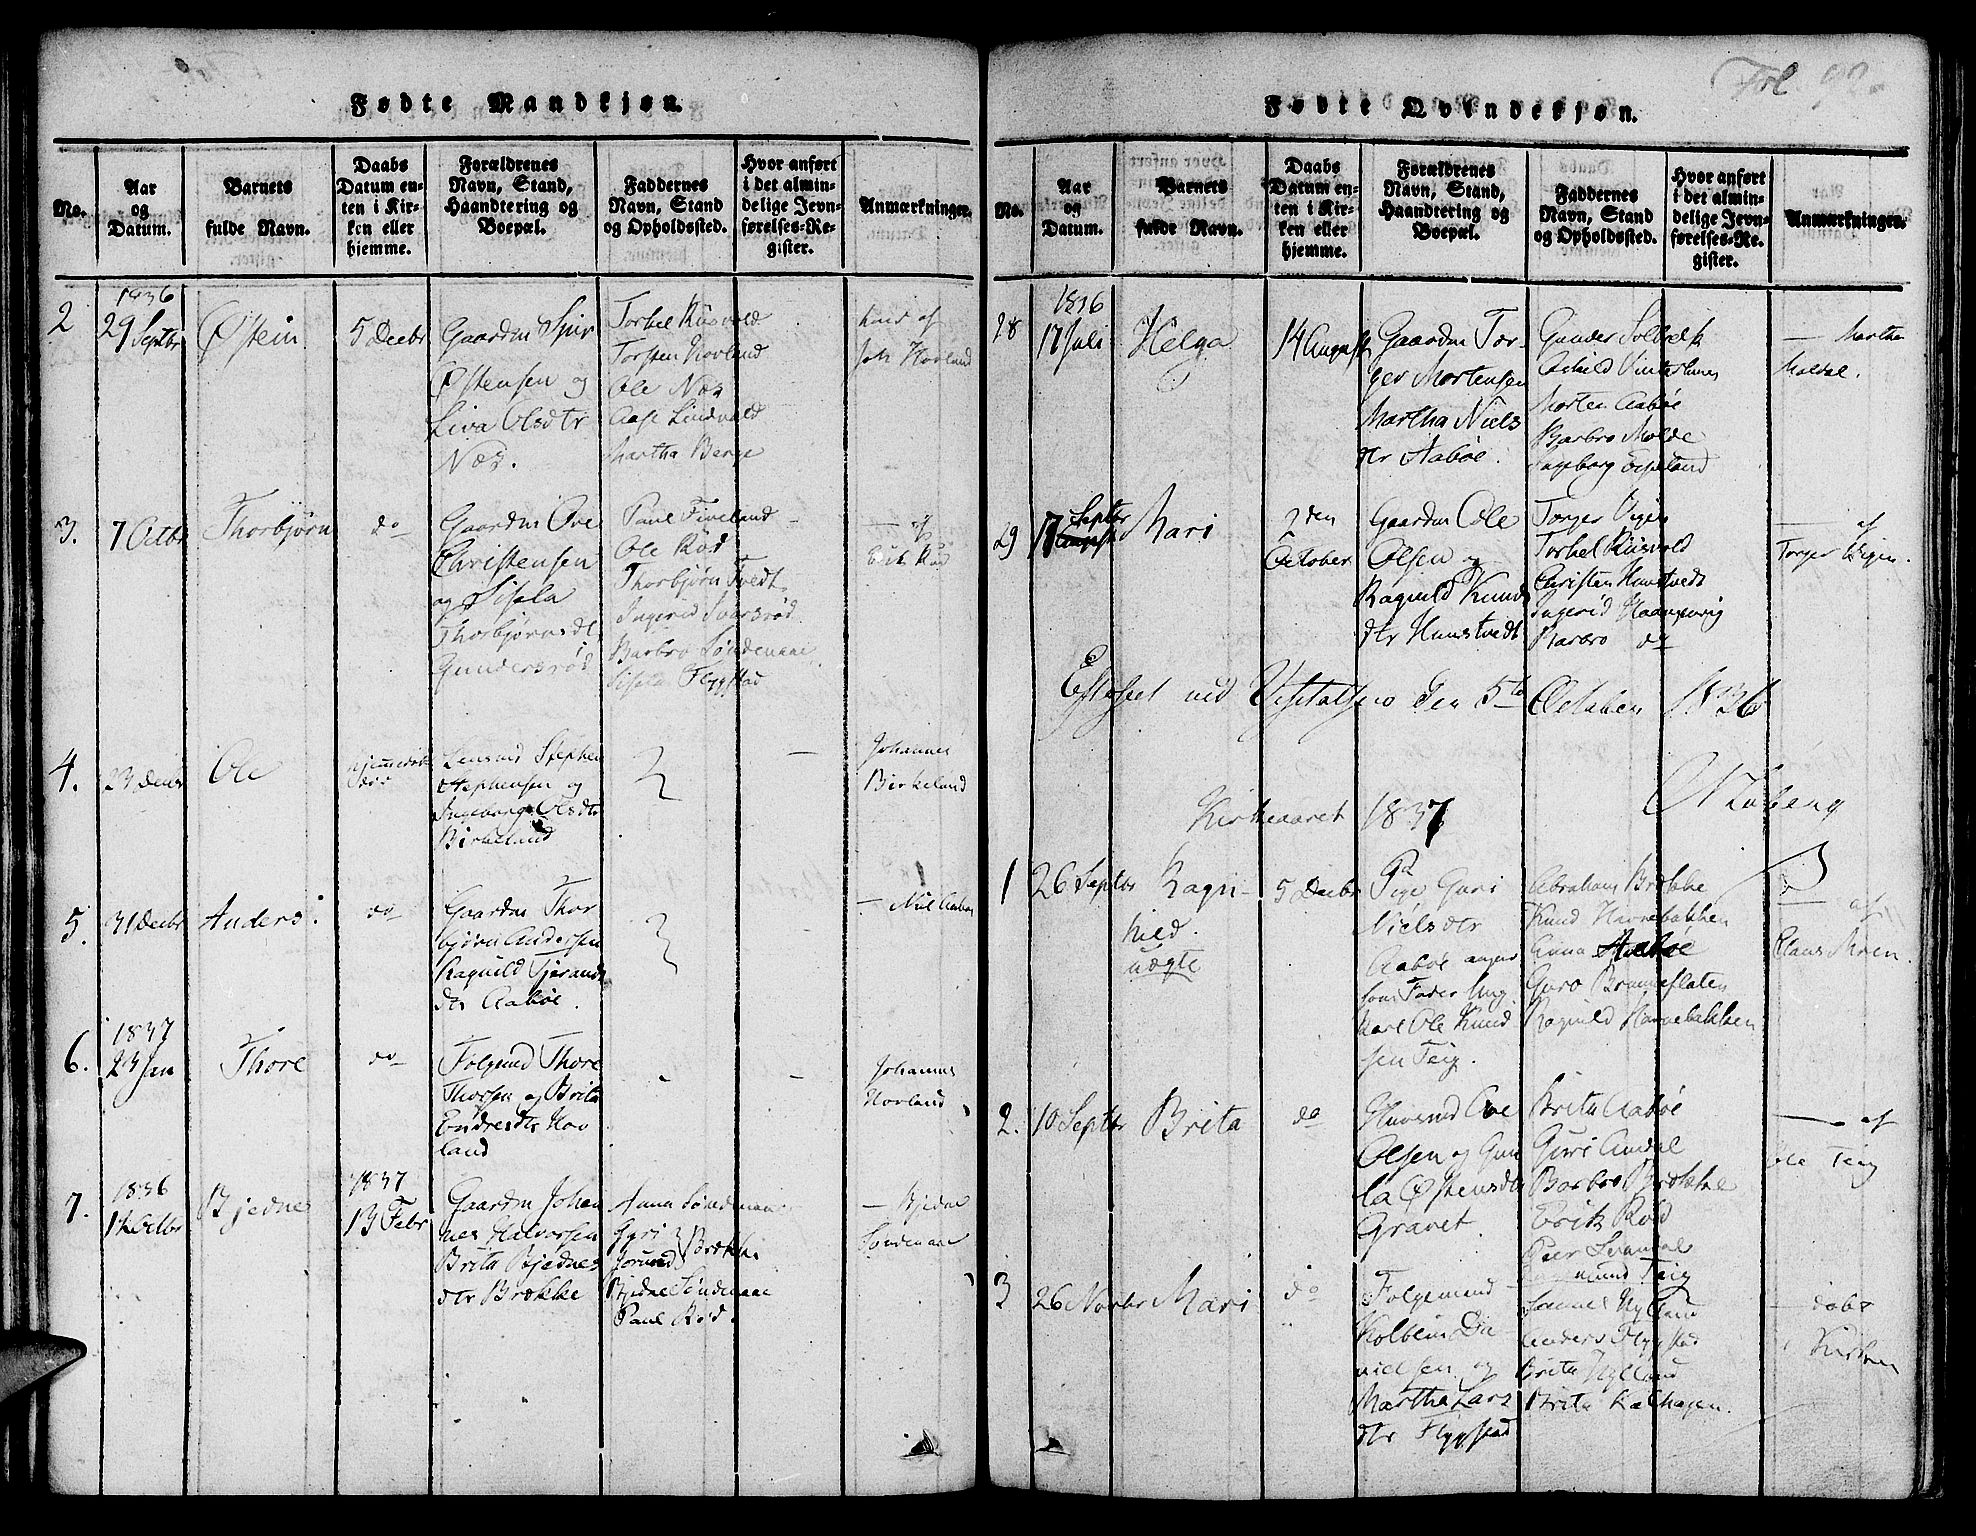 Fødte Mandkjøn.
No.
Aar og Datum.
Barnets fulde Navn.
Daabs Datum enten i Kirken eller hjemme.
Forældrenes Navn, Stand, Haandtering og Boepæl.
Faddernes Navn, Stand og Opholdssted.
Hvor anført i det almindelige Jevnførelses-Register.
Anmærkninger.
2
1836
29 Septbr
Østein
5 Decbr
Gaardm
Østensen og
Liva Olsdtr
Næs.
Torkel Rüsvold
Torsten Hovland
Ole Næs
Aase Lindvold
Martha Berge
af
Joh Hovland
3.
7 Octbr
Thorbjørn
do
Gaardm Ove
Christensen
og Sisela
Thorbjørnsdt
Gundersrød
Paul Fiveland
Ole Rød
Thorbjørn Tvedt
Ingerid Ivarsrød
Barbro Søndenaae
Sisela Flygstad
af
Erik Rød
4.
23 Decbr
Ole
hjemmedøbt
døs
Lensmd Stephen
Stephensen og
Ingeborg Olsdtr
Birkeland
Johannes
Birkeland
5.
31 Decbr
Anders.
do
Gaardm Thor
bjørn Andersen
Ragnild Tjerands
dtr Aabøe.
Niel Aabøe
6.
1837
23 Jan
Thore
do
Folgemd Thore
Thorsen og Brita
Endresdtr Hov
land
Johannes
Hovland
7.
1836
14 Octbr
Bjedne
1837
13 Febr
Gaardm Johan
nes Halvorsen
Brita Bjednes
dtr Brække
Anna Søndenaae
Gyri
Jorund Brække
Bjedne Søndenaae
Paul Rød.
Bjedne
Søndenaae
Fødte Qvindekjøn.
No.
Aar og Datum.
Barnets fulde Navn.
Daabs Datum enten i Kirken eller hjemme.
Forældrenes Navn, Stand, Haandtering og Boepæl.
Faddernes Navn, Stand og Opholdssted.
Hvor anført i det almindelige Jevnførelses-Register.
Anmærkninger.
28
1836
17 Juli
Helga
14 August
Gaardm Tor-
ger Mortensen
Martha Niels
dtr Aabøe.
Gunder
Morten Aabøe
Barbro Molde
Ingeborg Espeland
Martha
Maldal.
29
17 Septbr
Mari
2den
October
Gaardm Ole
Olsen og
Ragnild Knuds
dtr Hunstvedt
Torger Vigen
Torkel Rüsvold
Christen Hunstvedt
Ingerid Haangevig
Barbro do
af
Torger Vigen.
Efterseet ved Visitatsen den 5te October 1836
Kirkeaaret 1837
1
26 Septbr
Ragn-
hild.
uægte
5 Decbr
Pige Guri
Nielsdtr
Aabøe anger
som Fader Ung
karl Ole Knud
sen Teig.
Abraham Brække
Knud Havrebakken
Anna Aabøe
Guro Bramseflaten
Ragnild Havrebakken
af
Claus Moen.
2.
10 Septbr
Brita
do
Huusmd Ove
Olsen og Gun
la Østensdtr
Gravet.
Brita Aabøe
Guri Amdal
Barbro Brække
Erik Rød
af
Ole Teig
3
26 Novbr
Mari
do
Folgemand
Kolbein Da-
nielsen og
Martha Lars
dtr Flygstad
Teig
Hylland
Anders Flygstad
Brita Hylland
Brita Kalhagen.
døbt
Kirken